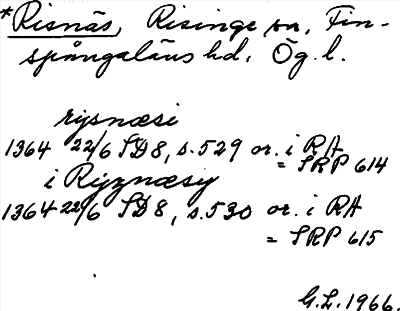 *Risnäs, Risinge sn, Fin-
spångaläns hd, Ög. l.
rijsnæsi
1364 22/6 SD 8, s. 529 or. i RA
= SRP 614
i Rijznæsy
1364 22/6 SD 8, s. 530 or. i RA
= SRP 615
G.L. 1966.